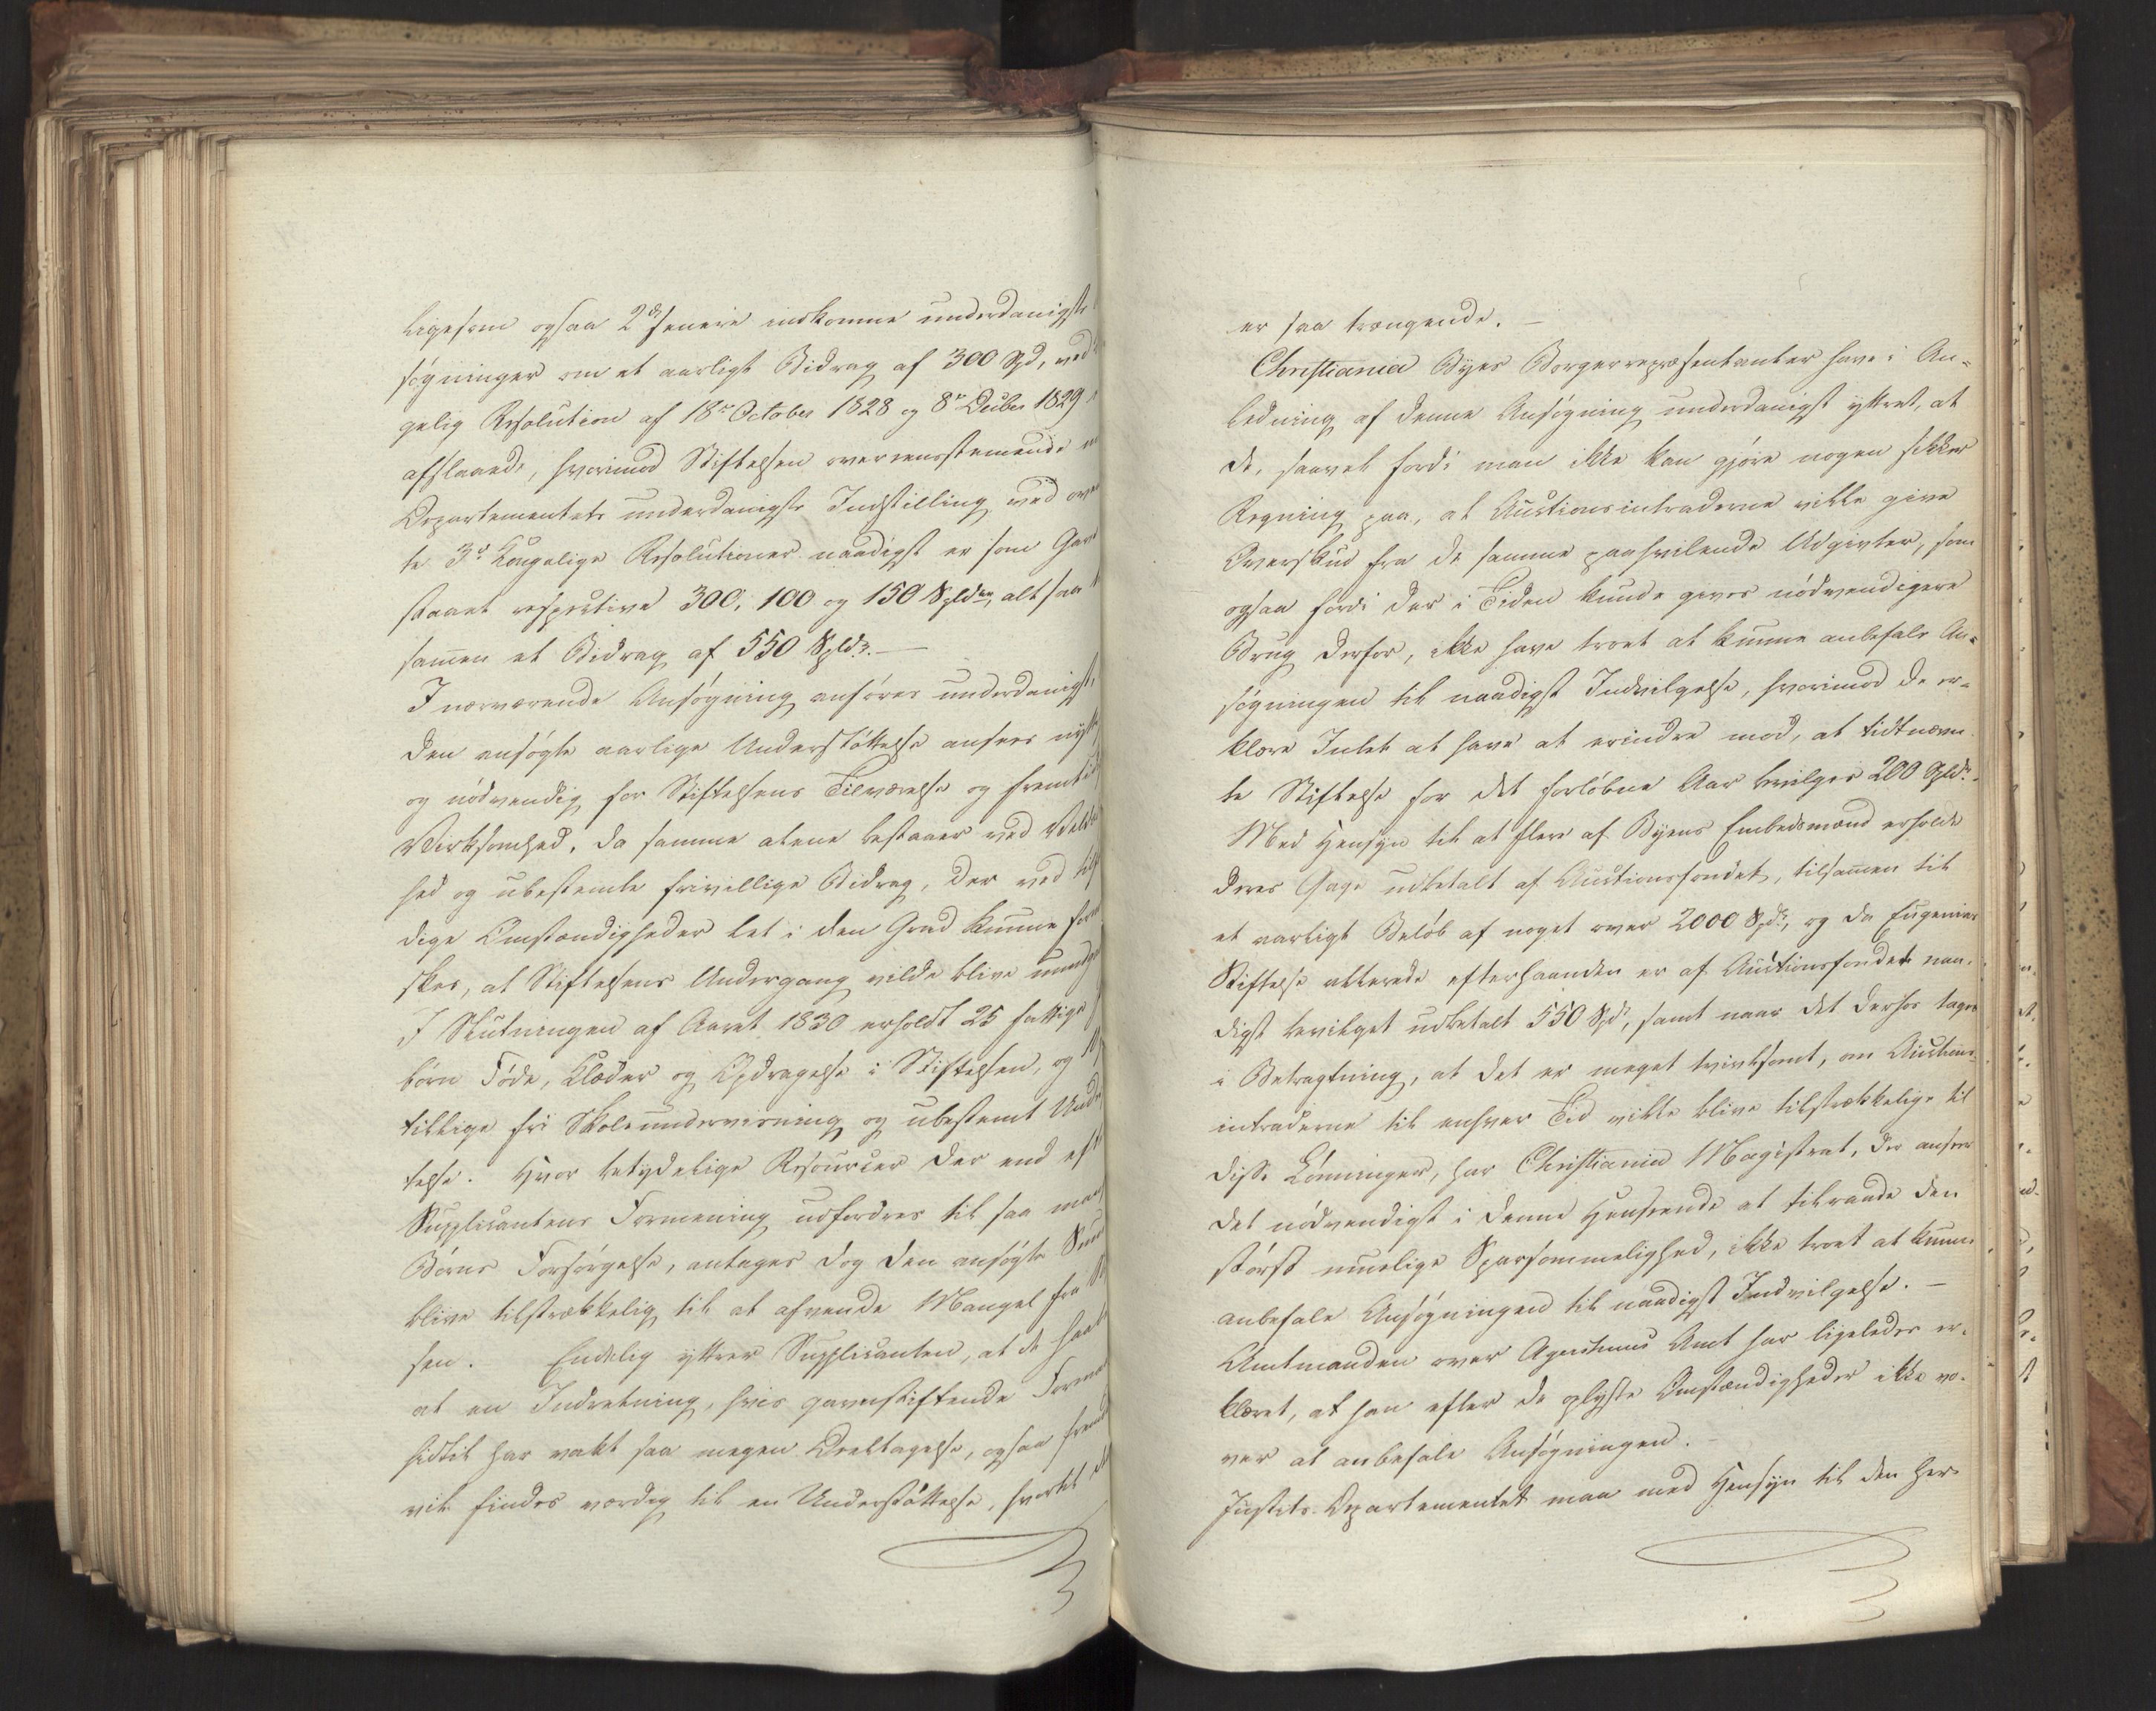 ligesom ogsaa 2de senere indkomne underdanigste
søgninger om et aarligt Bidrag af 300 Spd, ved
gelig Resolution af 18de October 1828 og 8de Decbr 1829
afslaaede, hvorimod Stiftelsen overeensstemmende
Departementets underdanigste Indstilling ved
te 3de Kongelige Resolutioner naadigst er som Gave
staaet respective 300, 100 og 150 Spd, altsaa
sammen et Bidrag af 550 Spd. —
I nærværende Ansøgning anføres underdanigst,
den ansøgte aarlige Understøttelse ansees
og nødvendig for Stiftelsens Tilværelse og
Virksomhed, da samme alene bestaaer ved
hed og ubestemte frivillige Bidrag, der ved
dige Omstændigheder let i den Grad kunne
skes, at Stiftelsens Undergang vilde blive
I Slutningen af Aaret 1830 erholdt 25 fattige
børn Føde, Klæder og Opdragelse i Stiftelsen, og
tillige fri Skoleunderviisning og ubestemt
telse. Hvor betydelige Resourcer der end
Supplicantens Formening udfordres til saa
Børns Forsørgelse, antages dog den ansøgte
blive tilstrækkelig til at afvende Mangel fra
sen. Endelig yttrer Supplicanten, at de
at en Indretning, hvis gavnstiftende
hidtil har vakt saa megen Deeltagelse, ogsaa
vil findes værdig til en Understøttelse, hvortil
er saa trængende. —
Christiania Byes Borgerrepræsentanter have i An-
ledning af denne Ansøgning underdanigst yttret, at
de, saavel fordi man ikke kan gjøre nogen sikker
Regning paa, at Auctionsintraderne ville give
Overskud fra de samme paahvilende Udgivter, som
ogsaa fordi der i Tiden kunde gives nødvendigere
Brug derfor, ikke have troet at kunne anbefale An-
søgningen til naadigst Indvilgelse, hvorimod de er-
klære Intet at have at erindre mod, at tidtnævn
te Stiftelse for det forløbne Aar bevilges 200 Spd.
Med Hensyn til at flere af Byens Embedsmænd erholde
deres Gage udbetalt af Auctionsfondet, tilsammen til
et aarligt Beløb af noget over 2000 Spd, og da Eugenias
Stiftelse allerede efterhaanden er af Auctionsfondet naa-
digst bevilget udbetalt 550 Spd, samt naar det derhos tages
i Betragtning, at det er meget tvivlsomt, om Auctions
intraderne til enhver Tid ville blive tilstrækkelige til
disse Lønninger, har Christiania Magistrat, der anseer
det nødvendigst i denne Henseende at tilraade den
størst muelige Sparsommelighed, ikke troet at kunne
anbefale Ansøgningen til naadigst Indvilgelse. —
Amtmanden over Agershuus Amt har ligeledes er-
klæret, at han efter de oplyste Omstændigheder ikke vo-
ver at anbefale Ansøgningen. —
Justits-Departementet maa med Hensyn til den her